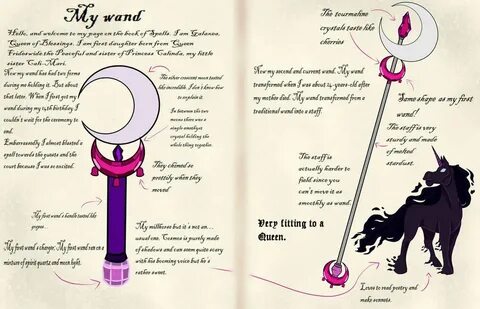 My wand
Hello, and welcome to my page on the book of Spells. I am Galaxea,
Queen of Blessings. I am first daughter born from Queen
Frideswide the Peaceful and sister of Princess Calinda, my little
sister Cali-Mari.
Now my wand has had two forms
during me holding it. But about
that later. When I first got my
wand during my 14th birthday, I
couldn't wait for the ceremony to
end.
Embarrassedly I almost blasted a
spell towards the guests and the
court because I was so excited.
The silver crescent moon tasted
like incredible. I don't know how
to explain it.
In between the two
moons there was a
single amethyst
crystal holding the
whole thing together.
They chimed so
prettily when they
moved
My first wand's handle tasted like
grapes.
My first wand's charger. My first wand ran on a
mixture of spirit quartz and moon light.
My
usual one. Cosmos is purely made
of shadows and can seem quite scary
with his booming voice but he's
rather sweet.
The tourmaline
crystals taste like
cherries
Now my second and current wand. My wand
transformed when I was about 24-years-old after
my mother died. My wand transformed from a
traditional wand into a staff.
Same shape as my first
wand!
The staff is very
sturdy and made
of melted
stardust.
The staff is
actually harder to
field since you
can't move it as
smoothly as wand.
Very fitting to a
Queen.
Loves to read poetry and
make sonnets.